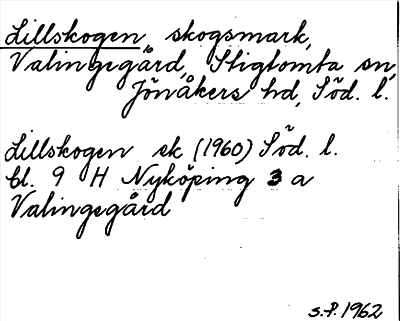 Lillskogen skogsmark,
Valingegård, Stigtomta sn,
Jönåkers hd, Söd. l.
Lillskogen sk (1960) Söd. l.
bl. 9 H Nyköping 3 a
Valingegård
S.P. 1962